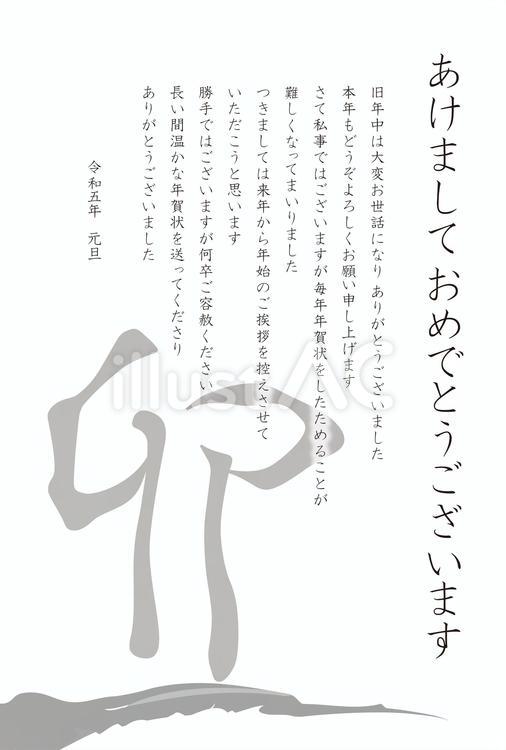 あけましておめでとうございます
旧年中は大変お世話になり ありがとうございました
本年もどうぞよろしくお願い申し上げます
さて私事ではございますが毎年年賀状をしたためることが
難しくなってまいりました
つきましては来年から年始のご挨拶を控えさせて
いただこうと思います
勝手ではございますが何卒ご容赦ください
長い間温かな年賀状を送ってくださり
ありがとうございました
令和五年 元旦
卯
illustAC